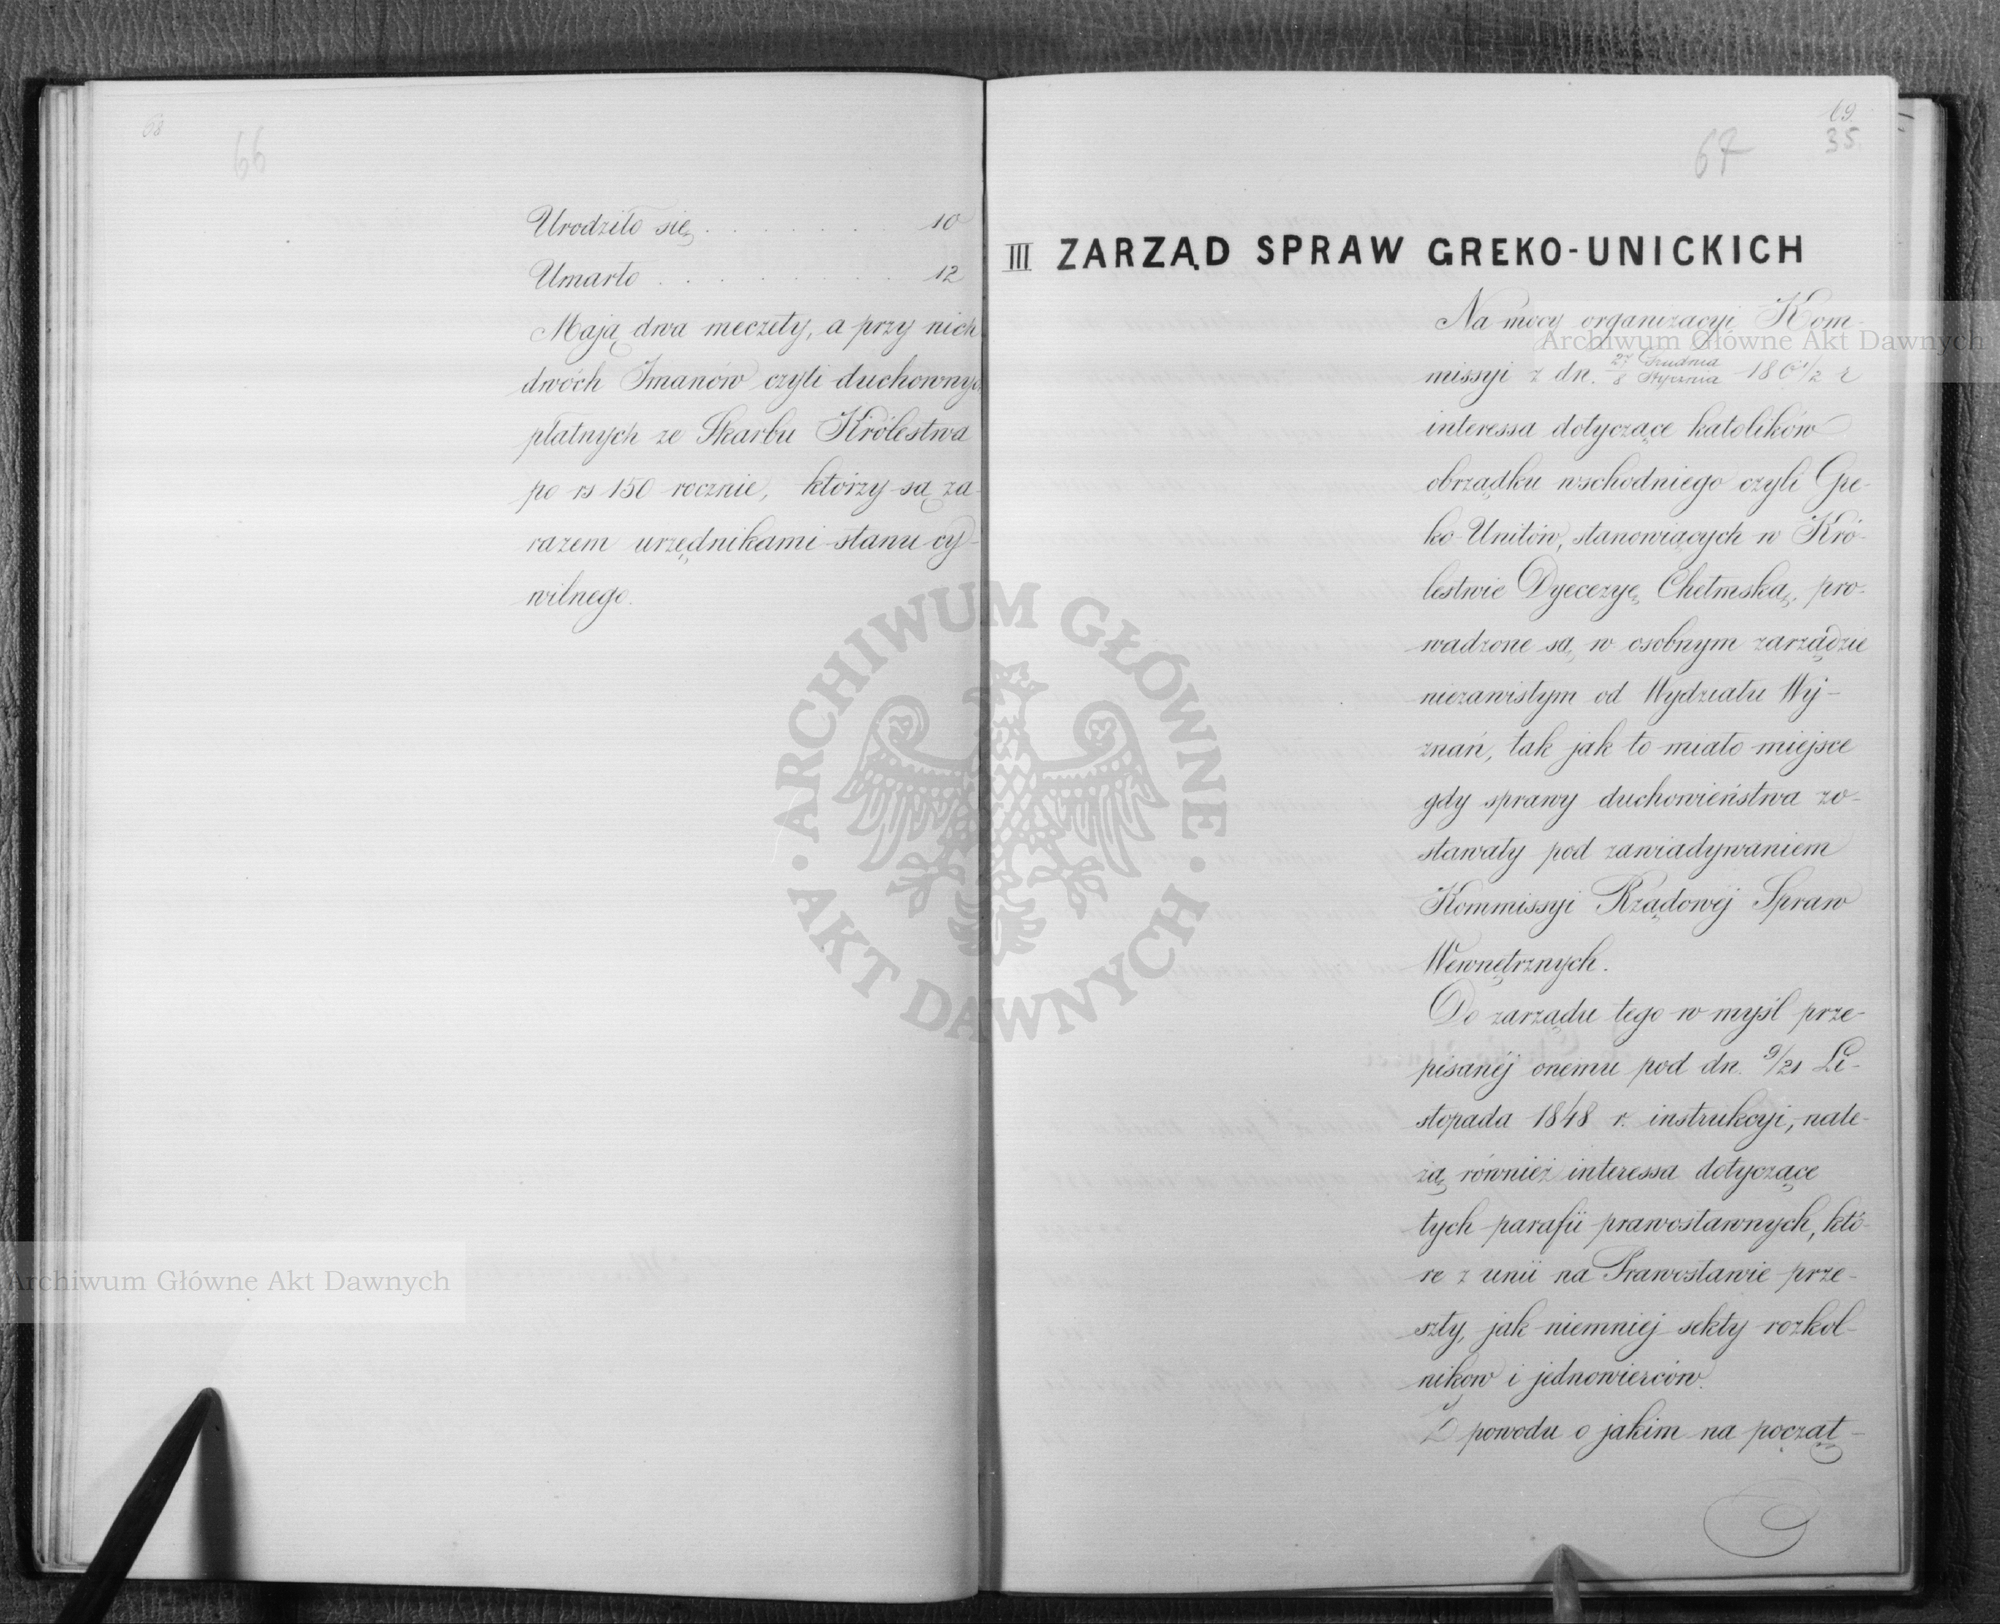 68
66
Urodziło się . . . . . . . 10
Umarło . . . . . . . 12
Mają dwa meczety, a przy nich
dwóch Imanów czyli duchownych
płatnych ze Skarbu Królestwa
po rs 150 rocznie, którzy są za-
razem urzędnikami stanu cy-
wilnego.
69.
35
67
III ZARZĄD SPRAW GREKO-UNICKICH
Na mocy organizacyi Kom-
missyi z dn. 27 Grudnia / 8 Stycznia 1861/2 r
interessa dotyczące katolików
obrządku wschodniego czyli Gre-
ko-Unitów, stanowiących w Kró-
lestwie Dyecezyę Chełmską, pro-
wadzone są, w osobnym zarządzie
niezawisłym od Wydziału Wy-
znań, tak jak to miało miejsce
gdy sprawy duchowieństwa zo-
stawały pod zawiadywaniem
Kommissyi Rządowéj Spraw
Wewnętrznych.
Do zarządu tego w myśl prze-
pisanéj onemu pod dn. 9/21 Li-
stopada 1848 r. instrukcyi, nale-
żą również interessa dotyczące
tych parafii prawosławnych, któ-
re z unii na Prawosławie prze-
szły, jak niemniej sekty rozkol-
ników i jednowierców.
Z powodu o jakim na począt-
Archiwum Główne Akt Dawnych
Archiwum Główne Akt Dawnych
ARCHIWUM GŁÓWNE
AKT DAWNYCH